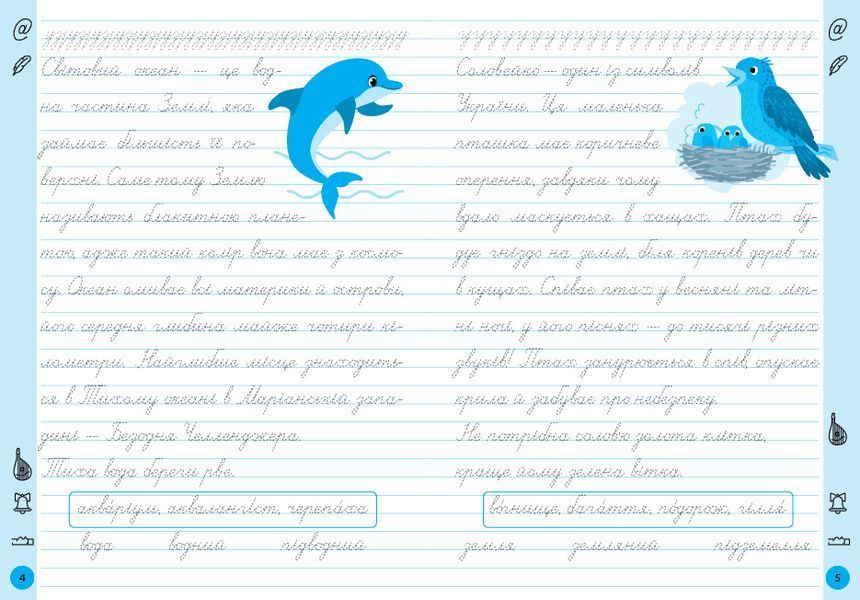 Світовий океан — це вод-
на частина Землі, яка
займає більшість її по-
верхні. Саме тому Землю
називають блакитною плане-
тою, адже такий колір вона має з космо-
су. Океан омиває всі материки й острови,
його середня глибина майже чотири кі-
лометри. Найглибше місце знаходить-
ся в Тихому океані в Маріанській запа-
дині — Безодня Челленджера.
Тиха вода береги рве.
аквáріум, аквалангíст, черепáха
вода водний підводний
4
Соловейко — один із символів
України. Ця маленька
пташка має коричневе
оперення, завдяки чому
вдало маскується в хащах. Птах бу-
дує гніздо на землі, біля коренів дерев чи
в кущах. Співає птах у весняні та літ-
ні ночі, у його піснях — до тисячі різних
звуків! Птах занурюється в спів, опускає
крила й забуває про небезпеку.
Не потрібна солов'ю золота клітка,
краще йому зелена вітка.
вóгнище, багáття, пóдорож, гілля́
земля земляний підземелля
5